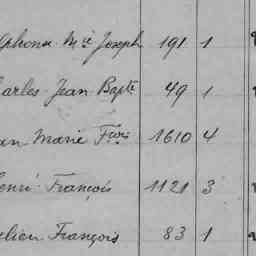 lphonse Mie Joseph 191 1
harles Jean Bapte 49 1
an Marie Frois 1610 4
enri François 1121 3
ulien François 83 1